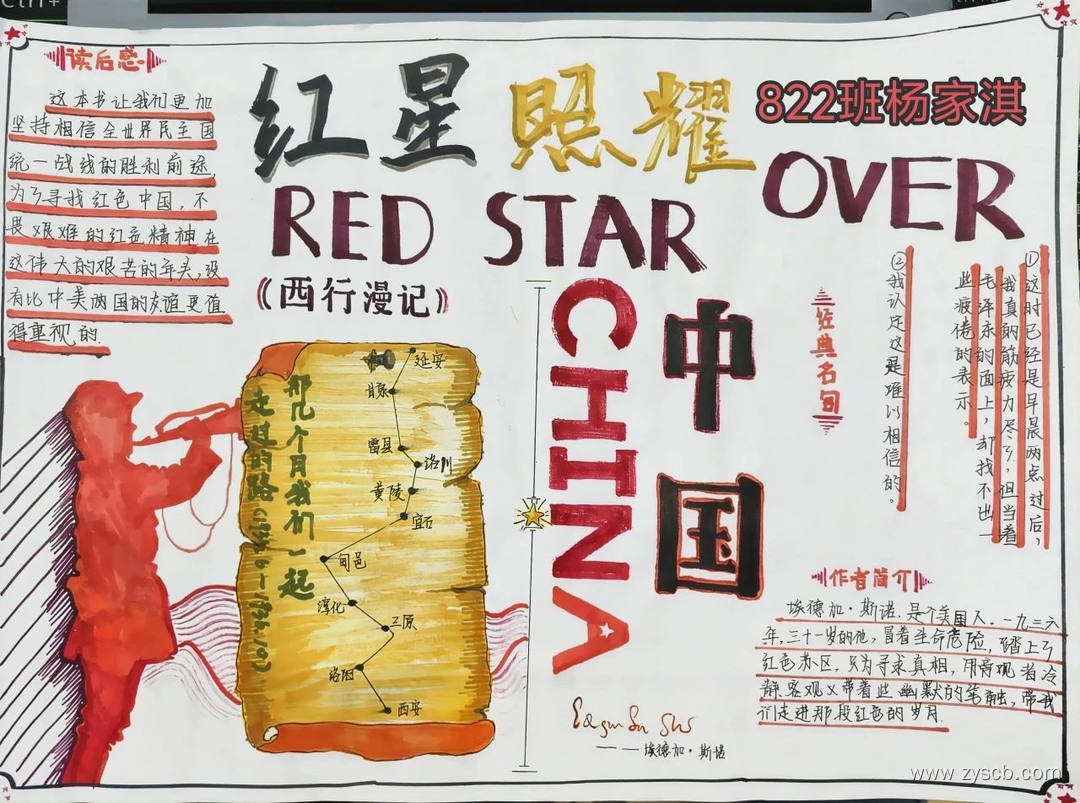 读后感
这本书让我们更加
坚持相信全世界民主国
统一战线的胜利前途,
为了寻找红色中国,不
畏艰难的红色精神在
这伟大的艰苦的年头,没
有比中美两国的友谊更值
得重视的.
红星照耀
822班杨家淇
RED STAR
OVER
(西行漫记)
CHINA
中国
那几个月我们一起
走过的路(1936.6—1936.10)
延安
甘泉
富县
洛川
黄陵
宜石
旬邑
淳化
三原
洛阳
西安
经典名句
①这时已经是早晨两点过后,
我真的筋疲力尽了,但当着
毛泽东的面上,却找不出一
些疲倦的表示。
②我认定这是难以相信的。
作者简介
埃德加·斯诺.是个美国人.一九三六
年,三十一岁的他,冒着生命危险,踏上了
红色苏区.只为寻求真相,用旁观者冷
静客观又带着些幽默的笔触,带我
们走进那段红色的岁月.
——埃德加·斯诺
www.zyscb.com